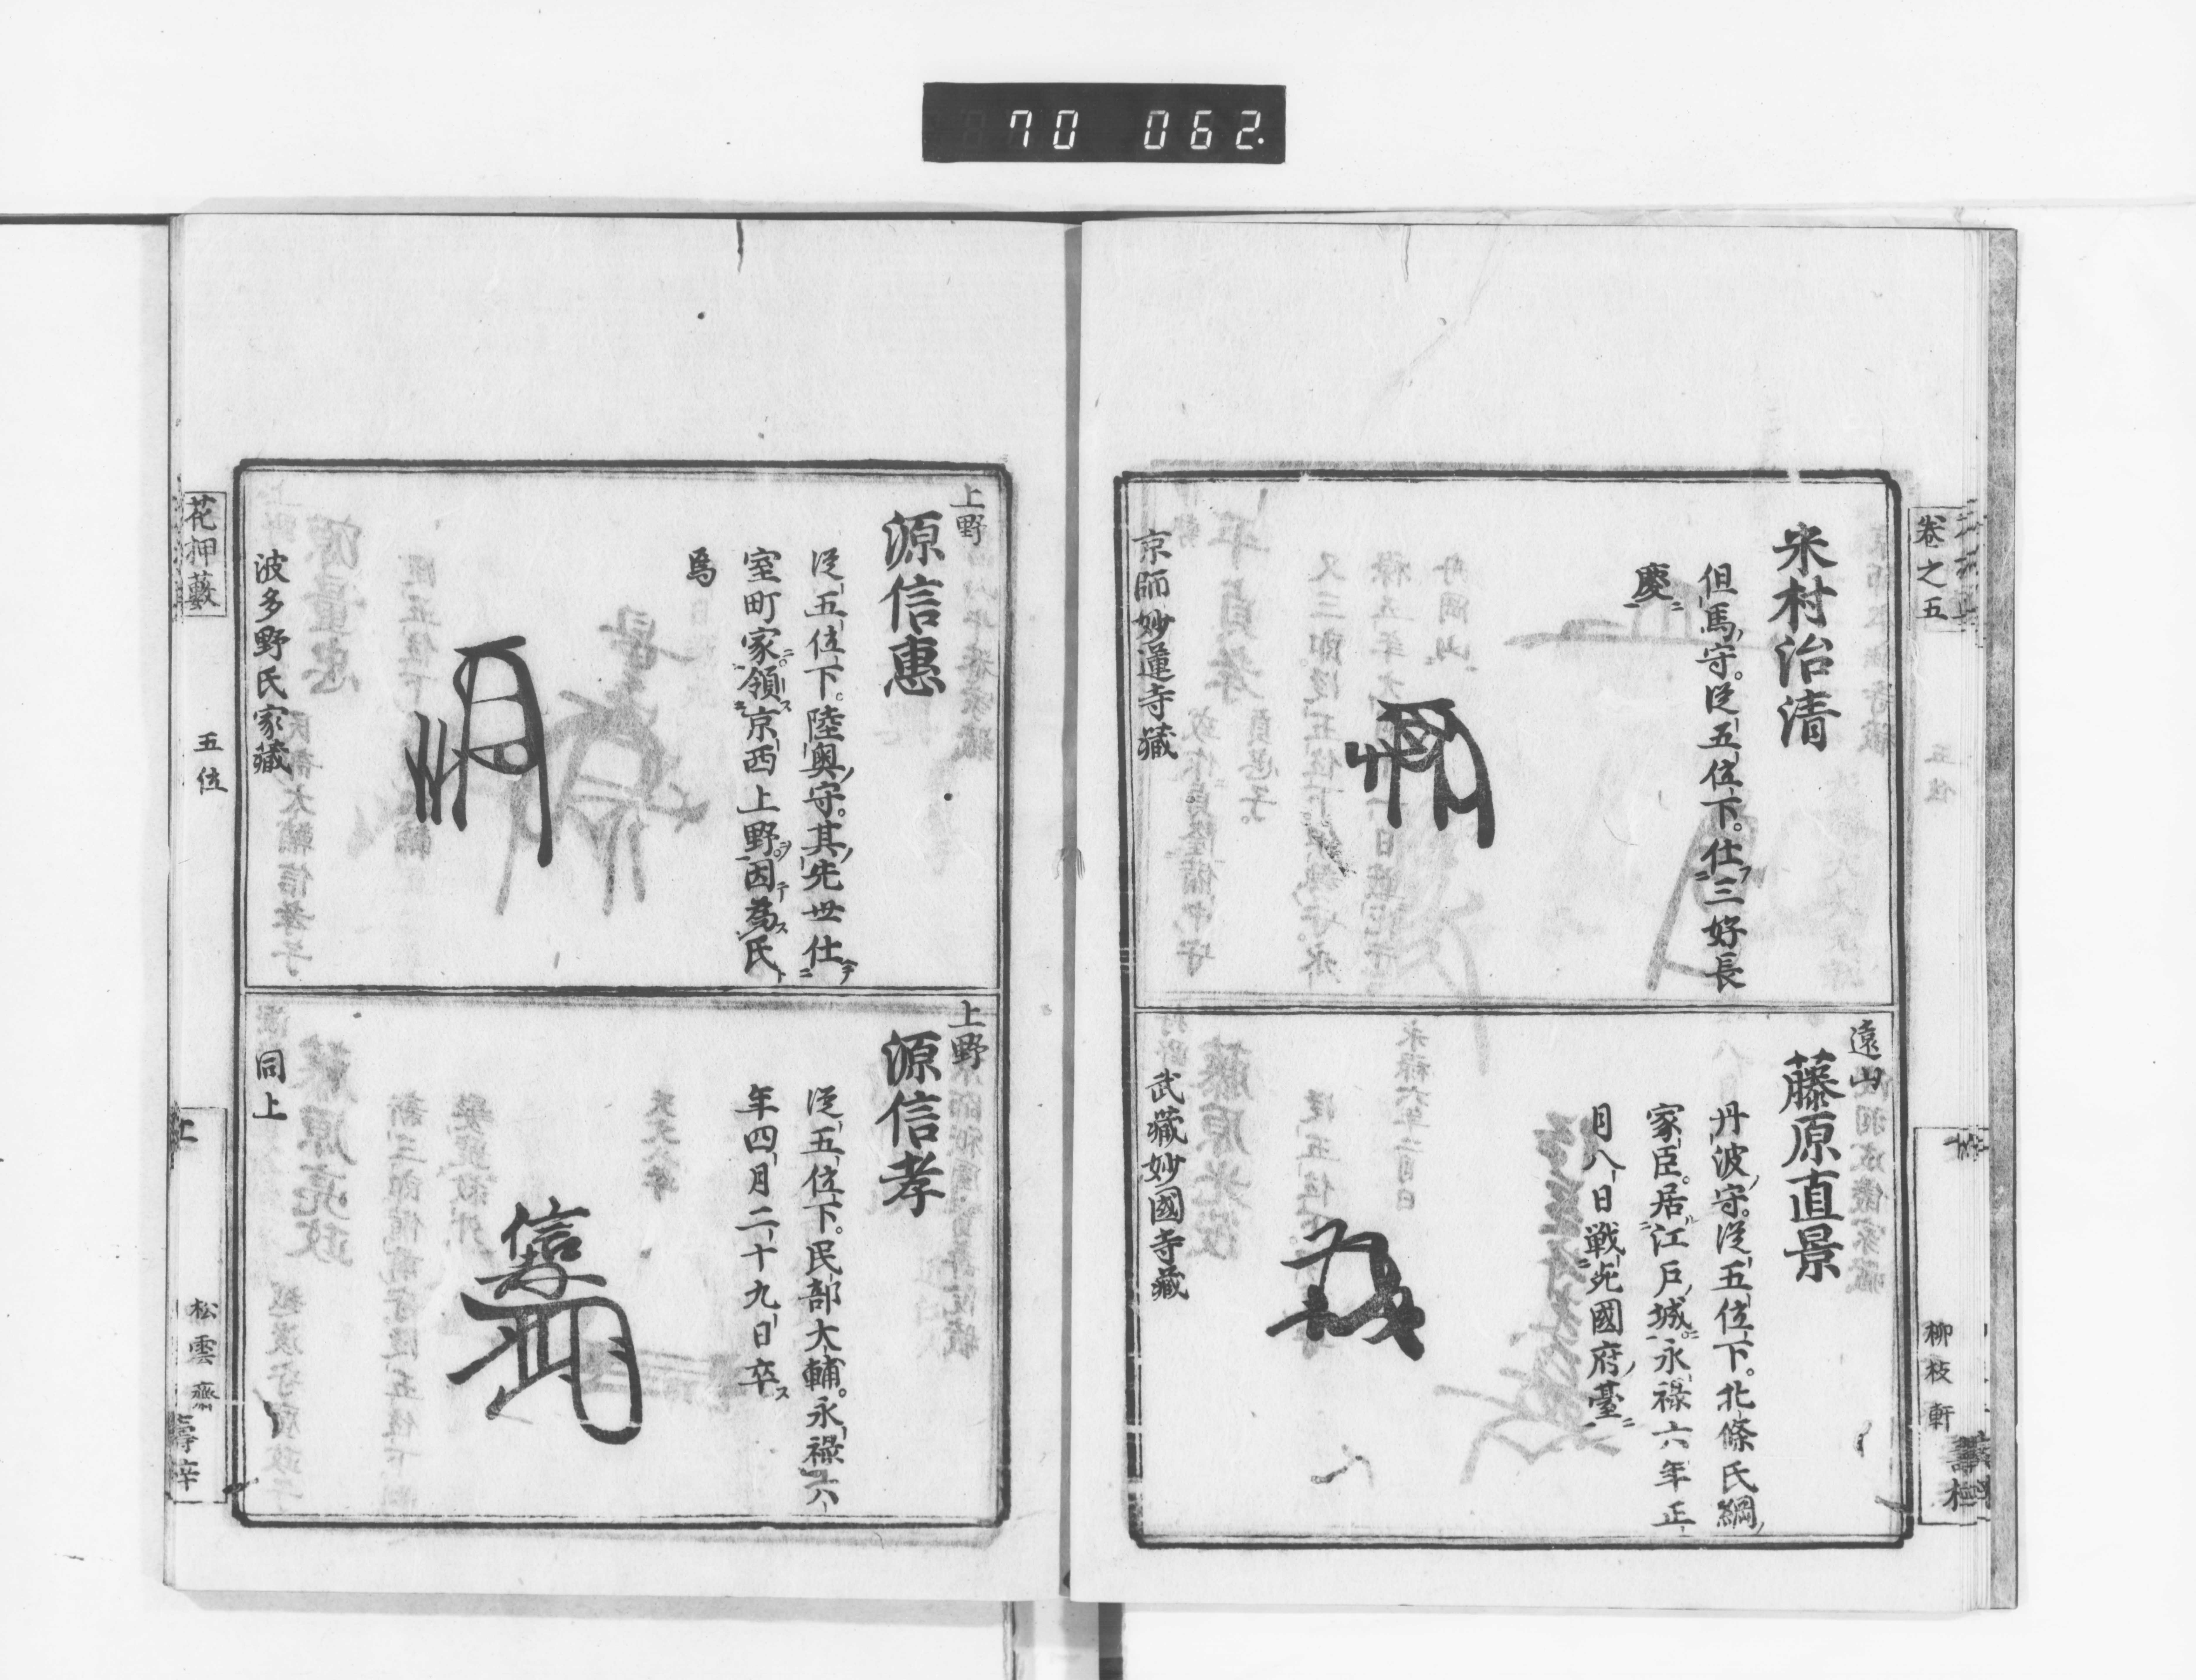 70 062.
卷之五
柳枝軒
米村治清
但馬守。従五位下。仕三好長
慶
京師妙蓮寺藏
遠山
藤原直景
丹波守。従五位下。北條氏綱
家臣。居江戸城。永祿六年正
月八日戰死國府臺
武藏妙國寺藏
上野
源信惠
従五位下。陸奥守。其先世仕
室町家。領京西上野。因為氏
焉
波多野氏家藏
上野
源信孝
従五位下。民部大輔。永祿六
年四月二十九日卒
同上
花押藪
五位
松雲齋
壽梓